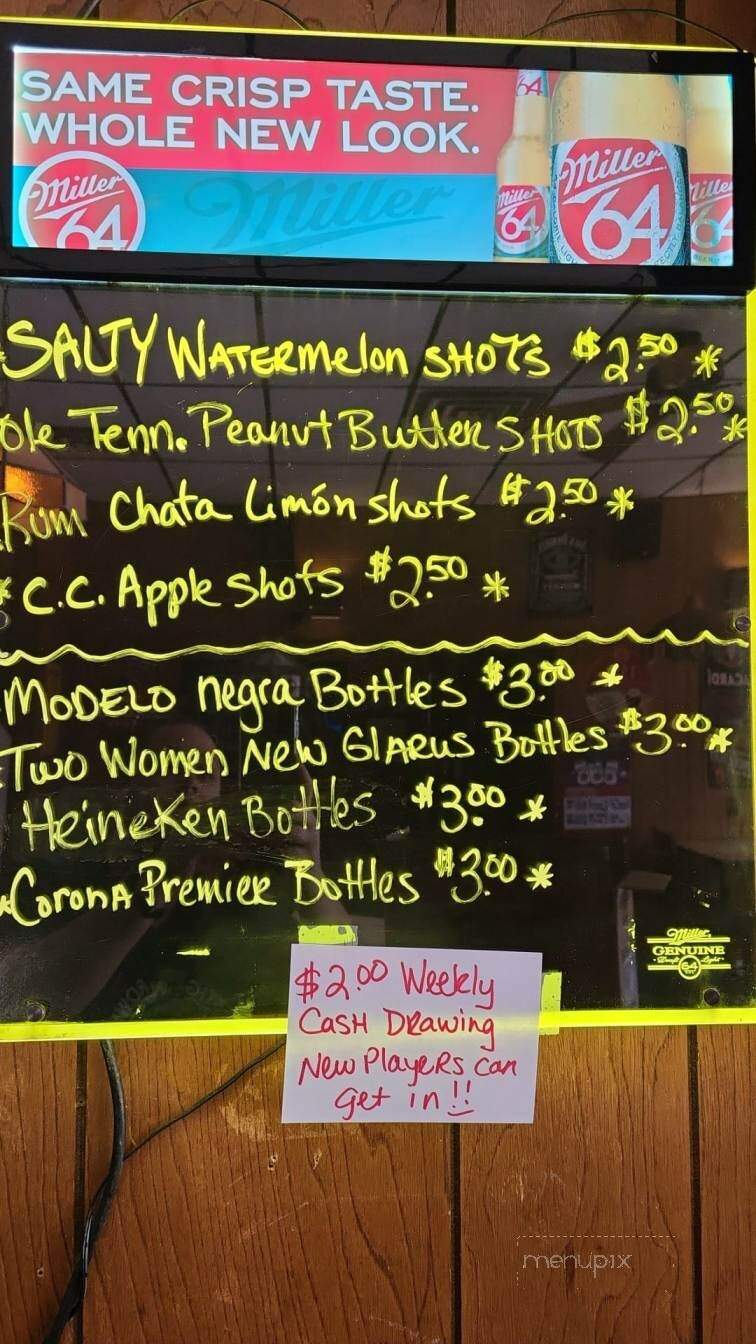 SAME CRISP TASTE.
WHOLE NEW LOOK.
Miller 64
Miller
64
Miller 64
Miller 64
Miller 64
SALTY WATERmelon SHOTS $2.50 *
Ole Tenn. Peanut Butter SHOTS $2.50 *
Rum Chata Limón shots $2.50 *
* C.C. Apple shots $2.50 *
MODELO negra Bottles $3.00 *
Two Women New GlARUS Bottles $3.00 *
HeineKen Bottles $3.00 *
*CoronA Premier Bottles $3.00 *
Miller
GENUINE
Draft Light
64
$2.00 Weekly
CASH DRAwing
New PlayeRs can
get in!!
menupix